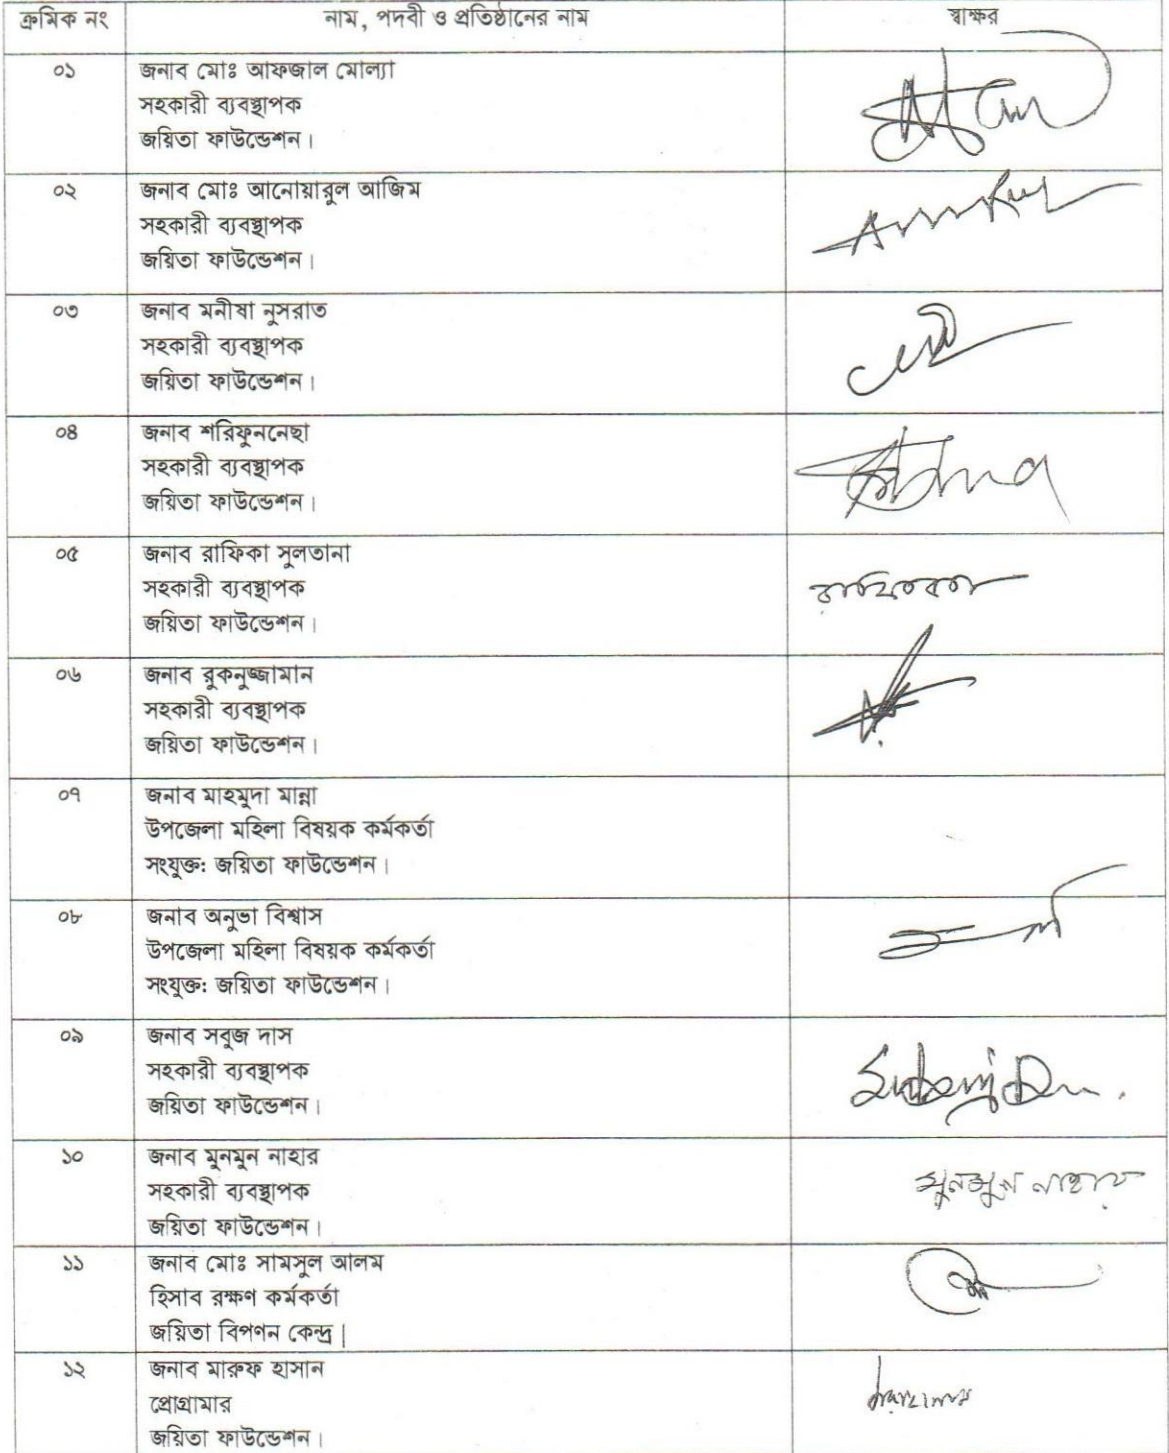 ক্রমিক নং নাম, পদবী ও প্রতিষ্ঠানের নাম স্বাক্ষর
০১ জনাব মোঃ আফজাল মোল্যা
সহকারী ব্যবস্থাপক
জয়িতা ফাউন্ডেশন।
০২ জনাব মোঃ আনোয়ারুল আজিম
সহকারী ব্যবস্থাপক
জয়িতা ফাউন্ডেশন।
০৩ জনাব মনীষা নুসরাত
সহকারী ব্যবস্থাপক
জয়িতা ফাউন্ডেশন।
০৪ জনাব শরিফুননেছা
সহকারী ব্যবস্থাপক
জয়িতা ফাউন্ডেশন।
০৫ জনাব রাফিকা সুলতানা
সহকারী ব্যবস্থাপক
জয়িতা ফাউন্ডেশন।
০৬ জনাব রুকনুজ্জামান
সহকারী ব্যবস্থাপক
জয়িতা ফাউন্ডেশন।
০৭ জনাব মাহমুদা মান্না
উপজেলা মহিলা বিষয়ক কর্মকর্তা
সংযুক্ত: জয়িতা ফাউন্ডেশন।
০৮ জনাব অনুভা বিশ্বাস
উপজেলা মহিলা বিষয়ক কর্মকর্তা
সংযুক্ত: জয়িতা ফাউন্ডেশন।
০৯ জনাব সবুজ দাস
সহকারী ব্যবস্থাপক
জয়িতা ফাউন্ডেশন।
১০ জনাব মুনমুন নাহার মুনমুন নাহার
সহকারী ব্যবস্থাপক
জয়িতা ফাউন্ডেশন।
১১ জনাব মোঃ সামসুল আলম
হিসাব রক্ষণ কর্মকর্তা
জয়িতা বিপণন কেন্দ্র|
১২ জনাব মারুফ হাসান
প্রোগ্রামার
জয়িতা ফাউন্ডেশন।